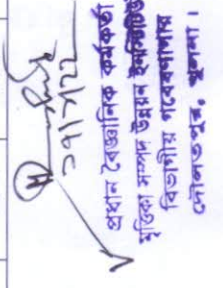 ২৭/৭/২২
প্রধান বৈজ্ঞানিক কর্মকর্তা
মৃত্তিকা সম্পদ উন্নয়ন ইনস্টিটিউট
বিভাগীয় গবেষণাগার
দৌলতপুর, খুলনা।